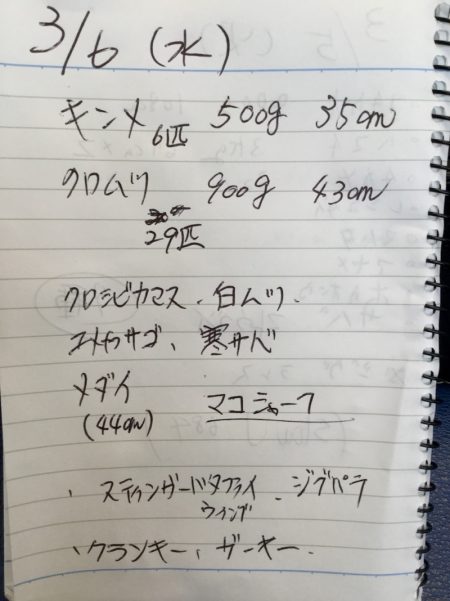 3/6 (水)
キンメ 6匹 500g 35cm
クロムツ 900g 43cm
29匹
クロシビカマス、白ムツ、
ユメカサゴ、寒サバ
メダイ
(44cm) マコジョーフ
・スティンガーバタフライ、ジグパラ
ウィング
・クランキー、ガーキー、